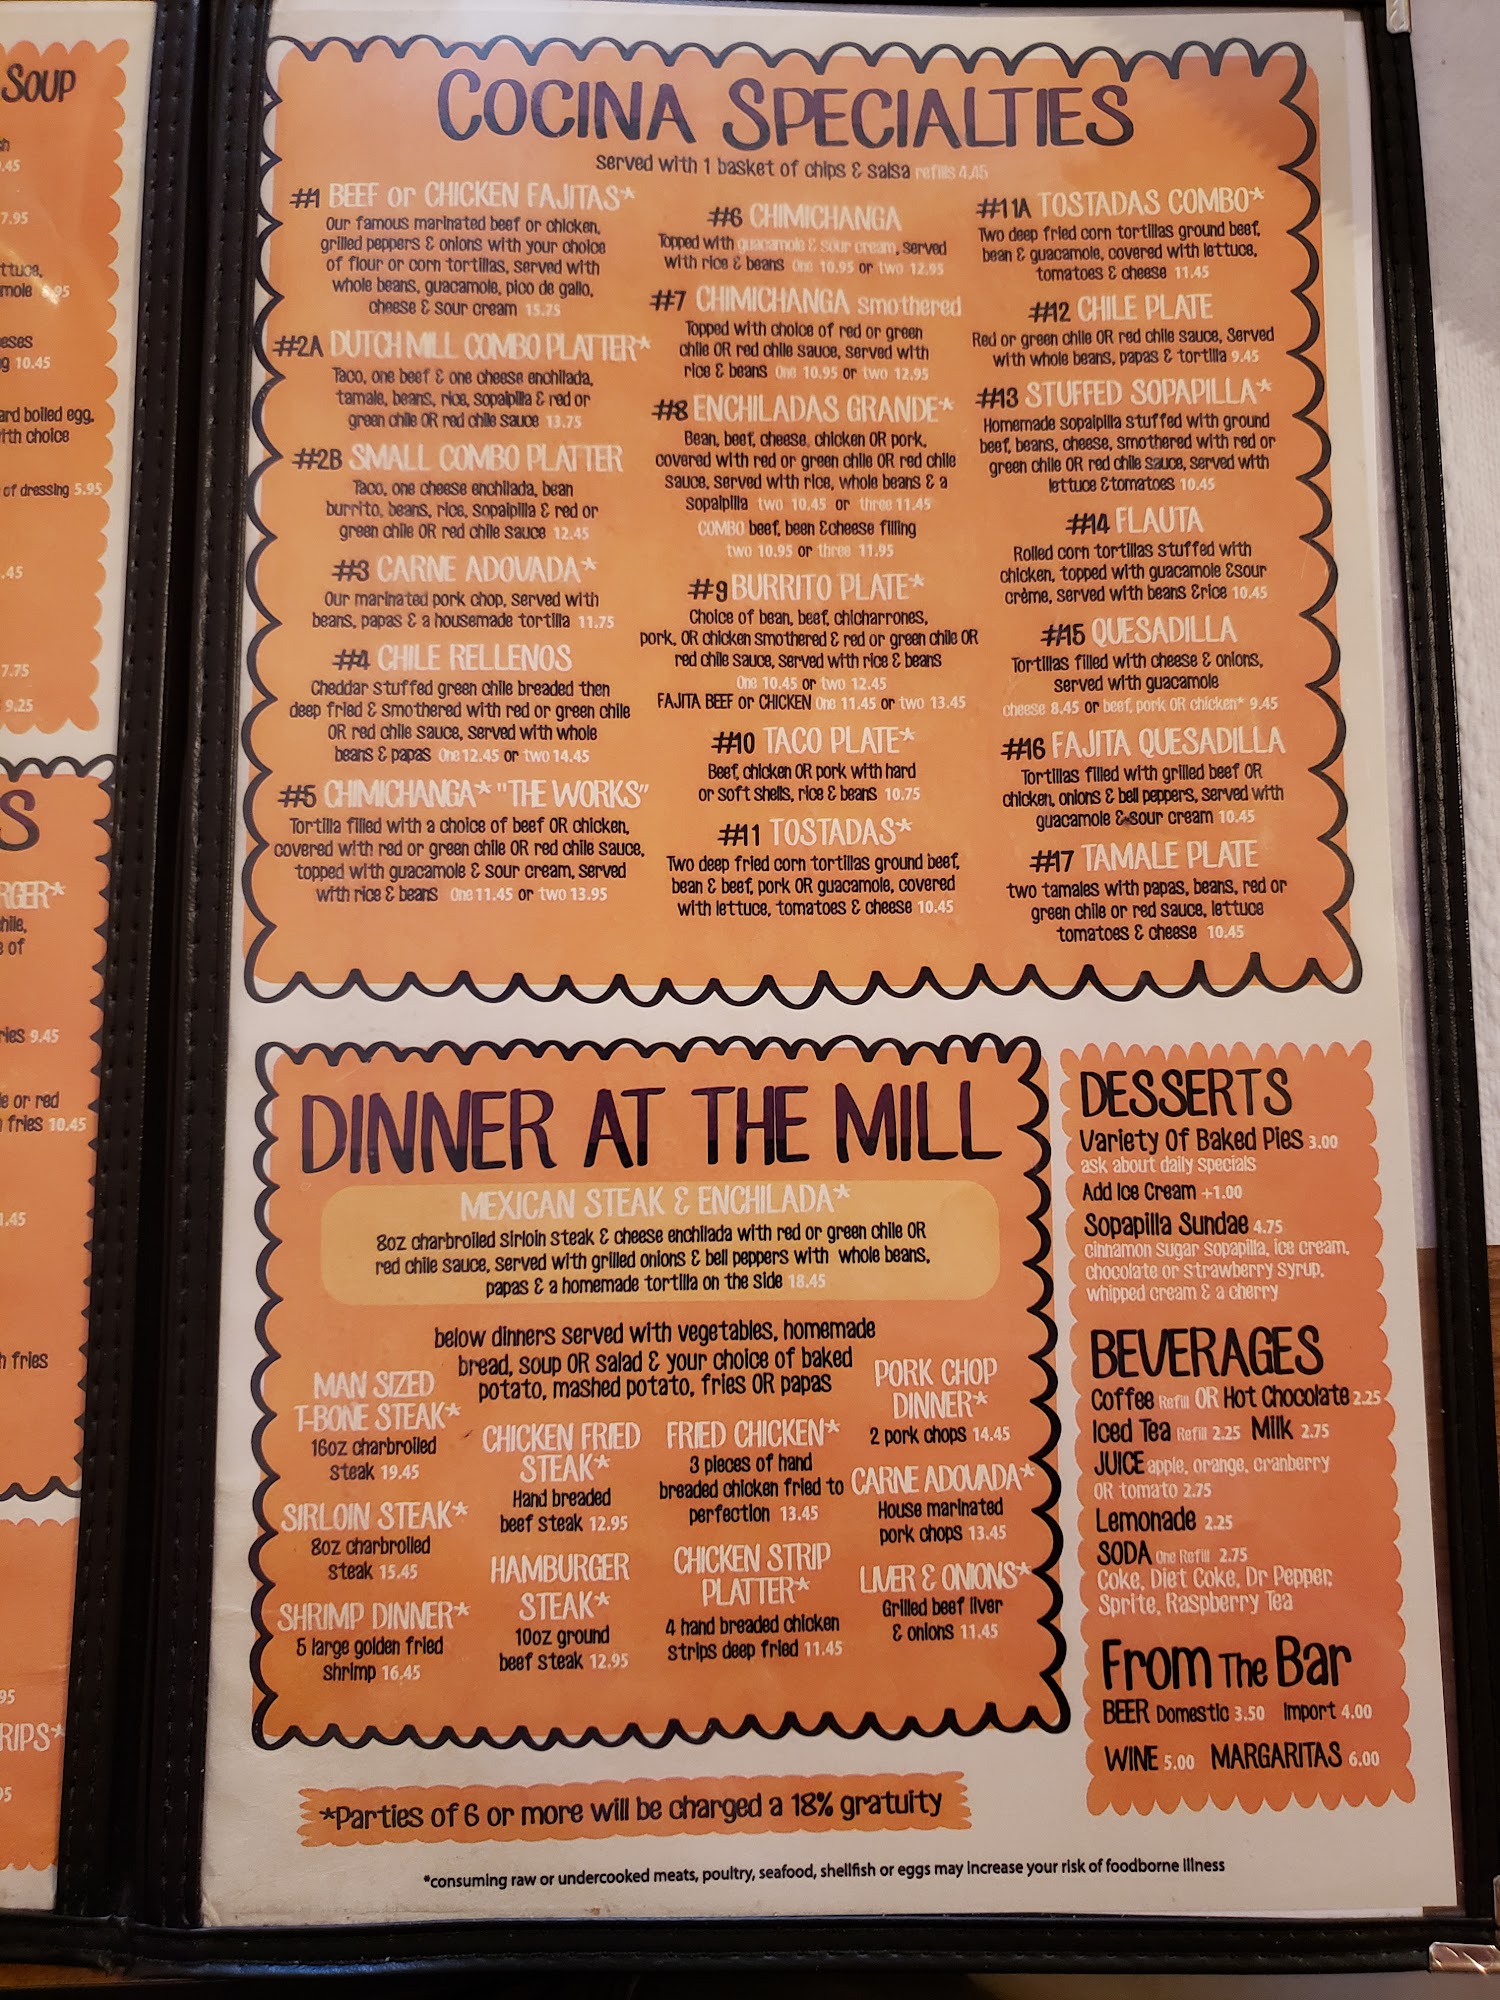 SOUP
.45
7.95
ttuce,
mole 8.95
eses
g 10.45
ard boiled egg,
ith choice
of dressing 5.95
.45
7.75
9.25
S
RGER*
hile,
e of
ries 9.45
le or red
fries 10.45
1.45
h fries
95
RIPS*
95
COCINA SPECIALTIES
served with 1 basket of chips & salsa refills 4.45
#1 BEEF or CHICKEN FAJITAS*
Our famous marinated beef or chicken,
grilled peppers & onions with your choice
of flour or corn tortillas, served with
whole beans, guacamole, pico de gallo,
cheese & sour cream 15.75
#2A DUTCH MILL COMBO PLATTER*
Taco, one beef & one cheese enchilada,
tamale, beans, rice, sopaipilla & red or
green chile OR red chile sauce 13.75
#2B SMALL COMBO PLATTER
Taco, one cheese enchilada, bean
burrito, beans, rice, sopaipilla & red or
green chile OR red chile sauce 12.45
#3 CARNE ADOVADA*
Our marinated pork chop, served with
beans, papas & a housemade tortilla 11.75
#4 CHILE RELLENOS
Cheddar stuffed green chile breaded then
deep fried & smothered with red or green chile
OR red chile sauce, served with whole
beans & papas One 12.45 or two 14.45
#5 CHIMICHANGA* "THE WORKS"
Tortilla filled with a choice of beef OR chicken,
covered with red or green chile OR red chile sauce,
topped with guacamole & sour cream, served
with rice & beans One 11.45 or two 13.95
#6 CHIMICHANGA
Topped with guacamole & sour cream, served
with rice & beans One 10.95 or two 12.95
#7 CHIMICHANGA smothered
Topped with choice of red or green
chile OR red chile sauce, served with
rice & beans One 10.95 or two 12.95
#8 ENCHILADAS GRANDE*
Bean, beef, cheese, chicken OR pork,
covered with red or green chile OR red chile
sauce, served with rice, whole beans & a
sopaipilla two 10.45 or three 11.45
COMBO beef, bean &cheese filling
two 10.95 or three 11.95
#9 BURRITO PLATE*
Choice of bean, beef, chicharrones,
pork, OR chicken smothered & red or green chile OR
red chile sauce, served with rice & beans
One 10.45 or two 12.45
FAJITA BEEF or CHICKEN One 11.45 or two 13.45
#10 TACO PLATE*
Beef, chicken OR pork with hard
or soft shells, rice & beans 10.75
#11 TOSTADAS*
Two deep fried corn tortillas ground beef,
bean & beef, pork OR guacamole, covered
with lettuce, tomatoes & cheese 10.45
#11A TOSTADAS COMBO*
Two deep fried corn tortillas ground beef,
bean & guacamole, covered with lettuce,
tomatoes & cheese 11.45
#12 CHILE PLATE
Red or green chile OR red chile sauce, Served
with whole beans, papas & tortilla 9.45
#13 STUFFED SOPAPILLA*
Homemade sopaipilla stuffed with ground
beef, beans, cheese, smothered with red or
green chile OR red chile sauce, served with
lettuce &tomatoes 10.45
#14 FLAUTA
Rolled corn tortillas stuffed with
chicken, topped with guacamole &sour
crème, served with beans &rice 10.45
#15 QUESADILLA
Tortillas filled with cheese & onions,
served with guacamole
cheese 8.45 or beef, pork OR chicken* 9.45
#16 FAJITA QUESADILLA
Tortillas filled with grilled beef OR
chicken, onions & bell peppers, served with
guacamole & sour cream 10.45
#17 TAMALE PLATE
two tamales with papas, beans, red or
green chile or red sauce, lettuce
tomatoes & cheese 10.45
DINNER AT THE MILL
MEXICAN STEAK & ENCHILADA*
8oz charbroiled sirloin steak & cheese enchilada with red or green chile OR
red chile sauce, served with grilled onions & bell peppers with whole beans,
papas & a homemade tortilla on the side 18.45
below dinners served with vegetables, homemade
bread, soup OR salad & your choice of baked
potato, mashed potato, fries OR papas
MAN SIZED
T-BONE STEAK*
16oz charbroiled
steak 19.45
SIRLOIN STEAK*
8oz charbroiled
steak 15.45
SHRIMP DINNER*
5 large golden fried
shrimp 16.45
CHICKEN FRIED
STEAK*
Hand breaded
beef steak 12.95
HAMBURGER
STEAK*
10oz ground
beef steak 12.95
FRIED CHICKEN*
3 pieces of hand
breaded chicken fried to
perfection 13.45
CHICKEN STRIP
PLATTER*
4 hand breaded chicken
strips deep fried 11.45
PORK CHOP
DINNER*
2 pork chops 14.45
CARNE ADOVADA*
House marinated
pork chops 13.45
LIVER & ONIONS*
Grilled beef liver
& onions 11.45
DESSERTS
Variety Of Baked Pies 3.00
ask about daily specials
Add Ice Cream +1.00
Sopapilla Sundae 4.75
cinnamon sugar sopapilla, ice cream,
chocolate or strawberry syrup,
whipped cream & a cherry
BEVERAGES
Coffee Refill OR Hot Chocolate 2.25
Iced Tea Refill 2.25 Milk 2.75
JUICE apple, orange, cranberry
OR tomato 2.75
Lemonade 2.25
SODA One Refill 2.75
Coke, Diet Coke, Dr Pepper,
Sprite, Raspberry Tea
From The Bar
BEER Domestic 3.50 Import 4.00
WINE 5.00 MARGARITAS 6.00
*Parties of 6 or more will be charged a 18% gratuity
*consuming raw or undercooked meats, poultry, seafood, shellfish or eggs may increase your risk of foodborne illness